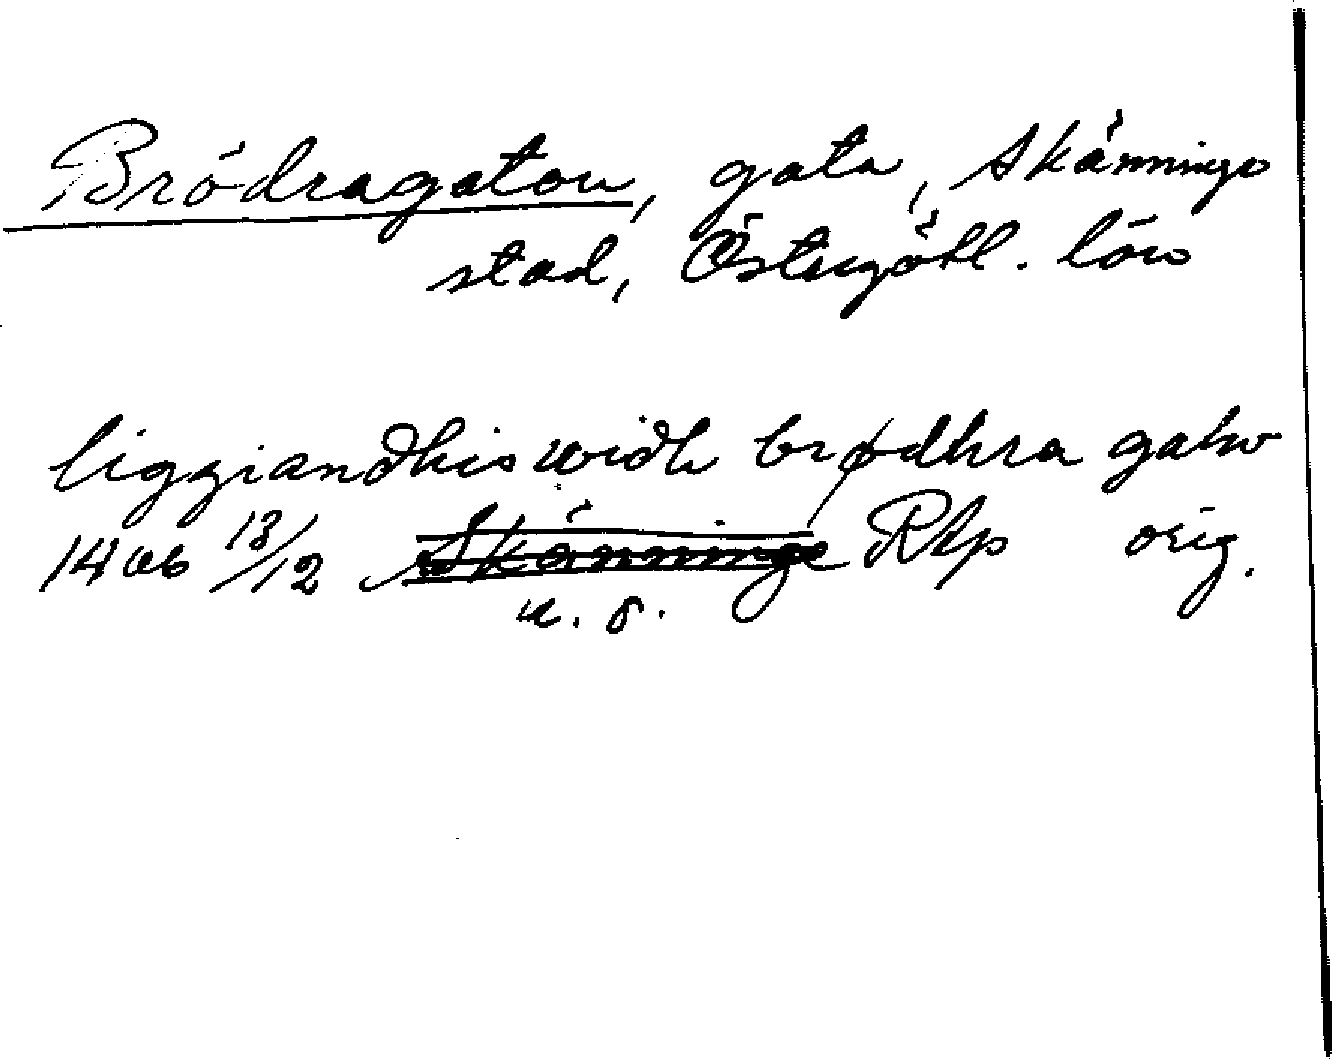 Brödragatan, gata, Skänninge
stad, Östergötl. län
liggiandhis widh brødhra gatw
1406 13/12 Skänninge RAp orig.
u. s.